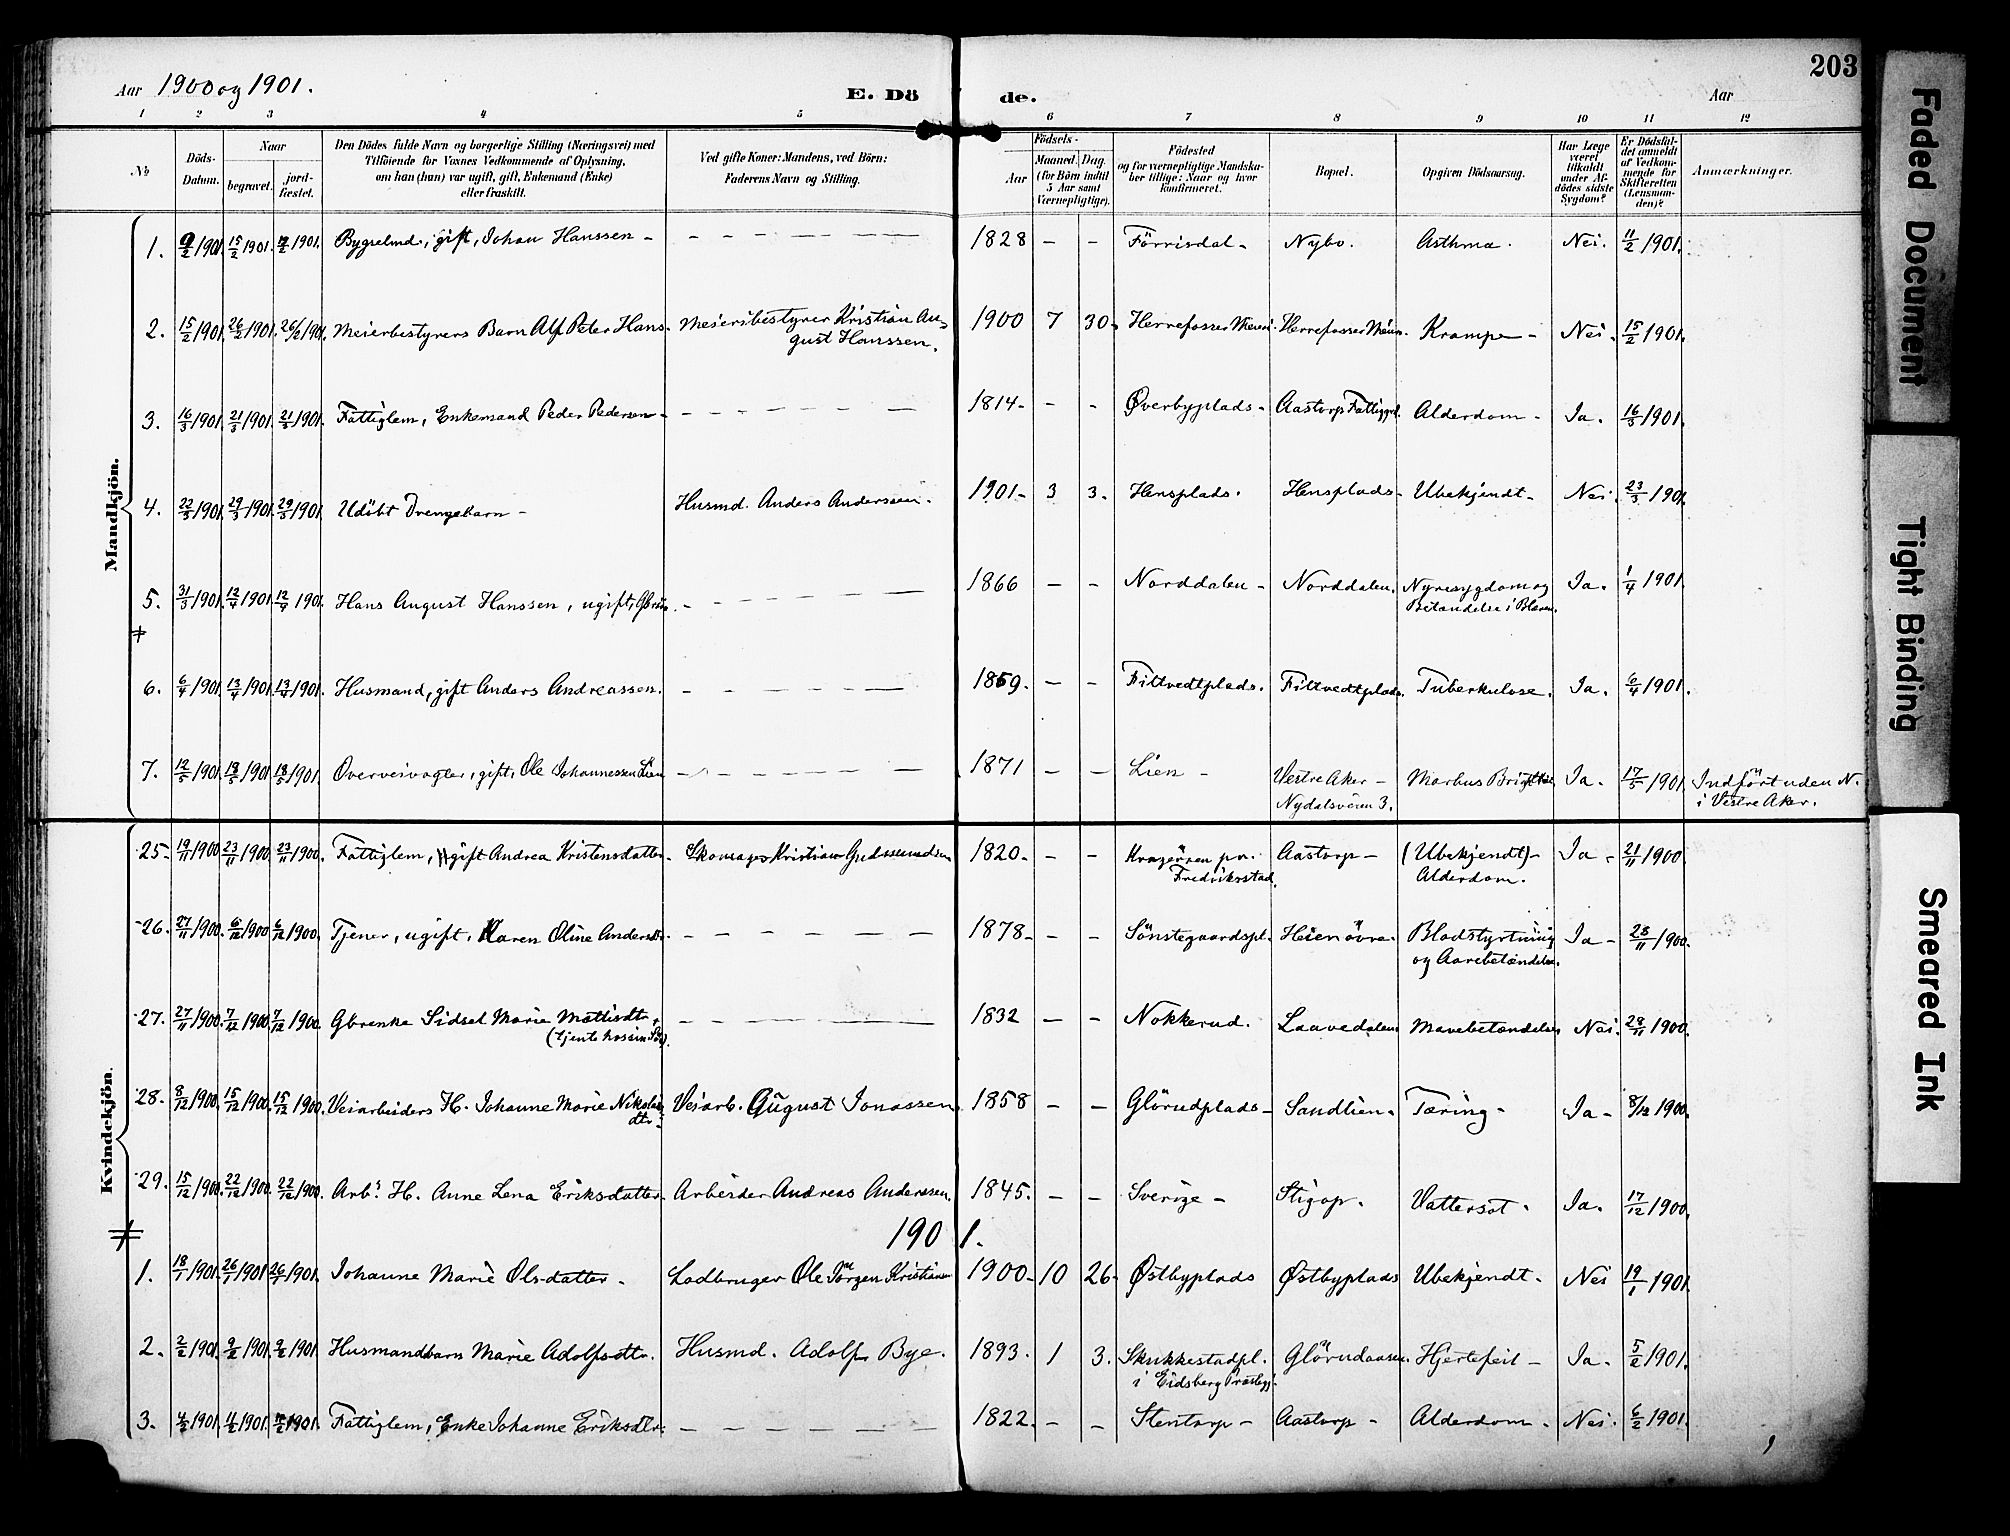 203
Aar 1900 og 1901.
E. Dö de.
Aar
1 2 3 4 5 6 7 8 9 10 11 12
No
Döds-Datum.
Naar
begravet.
jord-fæstet.
Den Dödes fulde Navn og borgerlige Stilling (Næringsvei) med
Tilföiende for Voxnes Vedkommende af Oplysning,
om han (hun) var ugift, gift, Enkemand (Enke)
eller fraskilt.
Ved gifte Koner: Mandens, ved Börn:
Faderens Navn og Stilling.
Födsels-
Aar
Maaned. Dag.
(for Börn indtil
5 Aar samt
Værnepligtige).
Födested
og for værnepligtige Mandska-
ber tillige: Naar og hvor
konfirmeret.
Bopæl.
Opgiven Dödsaarsag.
Har Læge
været
tilkaldt
under Af-
dödes sidste
Sygdom?
Er Dödsfal-
det anmeldt
af Vedkom-
mende for
Skifteretten
(Lensman-
den)?
Anmærkninger.
Mandkjön.
1. 9/2 1901 15/2 1901. 1901. Bygselmd., gift, Johan Hanssen - 1828 - - Förrisdal - Nybo. Asthma. Nei. 11/2 1901.
2. 15/2 1901 26/2 1901. 26/2 1901. Meierbestyrers Barn Alf Peter Hans. Meieribestyrer Kristian Au-
gust Hanssen. 1900 7 30. Herrefosser Meieri. Herrefosser Krampe - Nei. 15/2 1901.
3. 16/3 1901. 21/3 1901. 21/3 1901. Fattiglem, Enkemand Peder Pedersen - 1814 - - - Øverbyplads - Aastorp Fattiggd. Alderdom - Ja. 16/3 1901.
4. 22/3 1901. 29/3 1901. 29/3 1901. Udöbt Drengebarn - Husmd. Anders Anderssen. 1901 - 3 3. Hensplads. Hensplads - Ubekjendt - Nei. 23/3 1901.
5. 31/3 1901. 12/4 1901. 12/4 1901. Hans August Hanssen, ugift, 1866 - - Norddalen - Norddalen. Nyresygdom og
Betændelse i Blæren. Ja. 1/4 1901.
6. 6/4 1901. 13/4 1901. 13/4 1901. Husmand, gift Anders Andreassen. 1869. - - Fittvedtplads. Fittvedtplads. Tuberkulose. Ja. 6/4 1901.
7. 12/5 1901. 18/5 1901. 18/5 1901. Overveivogter, gift, Ole Johannessen Lien 1871 - - Lien - Vestre Aker -
Nydalsveien 3. Morbus Ja. 17/5 1901. Indfört uden N.
i Vestre Aker.
Kvindekjön.
25. 19/11 1900. 23/11 1900. 23/11 1900. Fattiglem, gift Andrea Kristensdatter. Skomager Kristian Gudmundsen 1820 - - - Kragerøen pr.
Fredriksstad. Aastorp - (Ubekjendt) -
Alderdom. Ja - 21/11 1900.
26. 27/11 1900. 6/12 1900. 6/12 1900. Tjener, ugift, Karen Oline Andersdtr. 1878 - - - Sönstegaardspl. Heien övre. Blodstyrtning
og Aarebetændelse. Ja - 28/11 1900.
27. 27/11 1900. 7/12 1900. 7/12 1900. Gbrenke Sidsel Marie Mattisdtr.
(tjente hos sin Sön). 1832 - - Nokkerud. Laavedalen Mavebetændelse Nei. 28/11 1900.
28. 8/12 1900. 15/12 1900. 15/12 1900. Veiarbeiders H. Johanne Marie Nikolai-
dtr. Veiarb. August Jonassen 1858 - - Glörudplads - Sandlien - Tæring - Ja - 8/12 1900.
29. 15/12 1900. 22/12 1900. 22/12 1900. Arb's H. Anne Lena Eriksdatter. Arbeider Andreas Anderssen. 1845. - - Sverige - Stigop. Vattersot. Ja. 17/12 1900.
1901.
1. 18/1 1901. 26/1 1901. 26/1 1901. Johanne Marie Olsdatter. Ladbruger Ole Jörgen Kristiansen 1900 - 10 26. Østbyplads Østbyplads Ubekjendt - Nei 19/1 1901.
2. 2/2 1901. 9/2 1901. 9/2 1901. Husmandbarn Marie Adolfsdtr. Husmd. Adolf Bye. 1893. 1 3. Skukkestadpl.
i Eidsberg Præstegj. Glörudaasen. Hjertefeil - Ja. 5/2 1901.
3. 4/2 1901. 1901. 1901. Fattiglem, Enke Johanne Eriksdtr. 1822. - - Stentorp - Aastorp - Alderdom. Nei. 6/2 1901.
Faded Document
Tight Binding
Smeared Ink